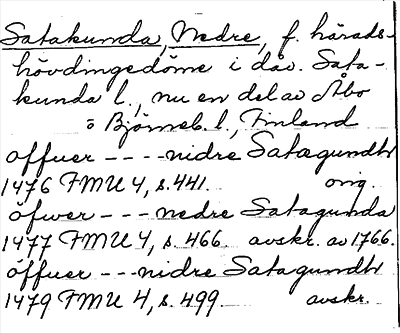 Satakunda, Nedre, f. härads-
hövdingedöme i dåv. Sata-
kunda l., nu en del av Åbo
o Björneb. l., Finland
offuer - - - - nidre Satagundh
1476 FMU 4, s. 441. orig.
öfwer - - - nedre Satagunda
1477 FMU 4, s. 466. avskr. av 1766.
öffuer - - - nidre Satagundh
1479 FMU 4, s. 499. avskr.